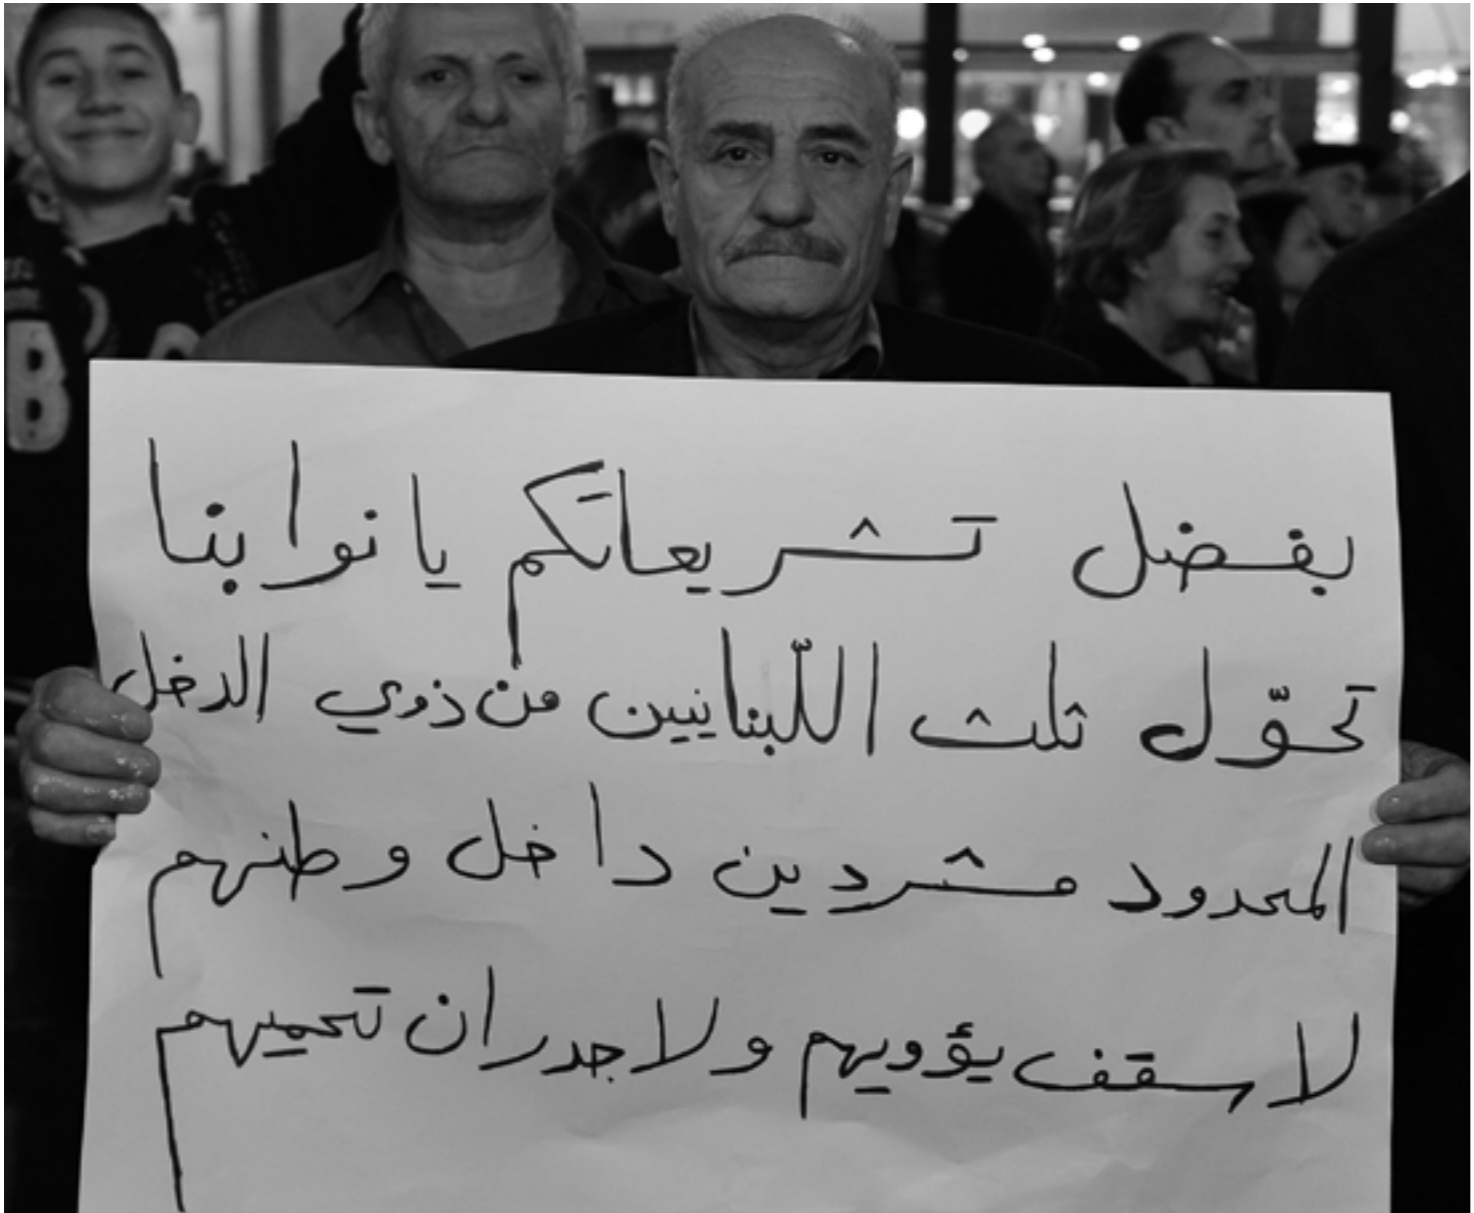 بفضل تشريعاتكم يا نوابنا
تحوّل ثلث اللّبنانيين من ذوي الدخل
المحدود مشردين داخل وطنهم
لا سقف يؤويهم ولا جدران تحميهم
B